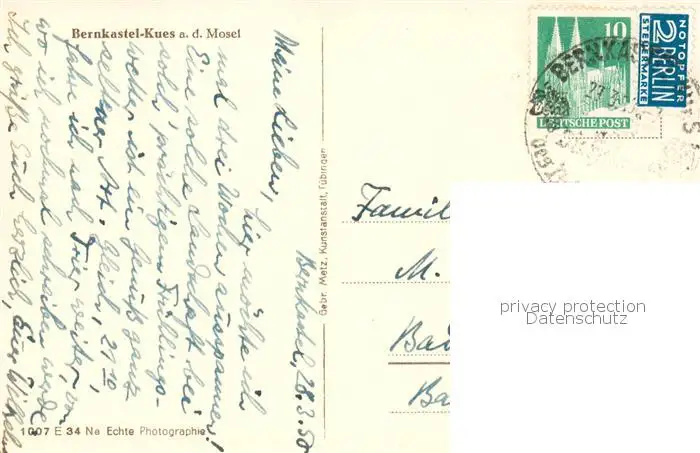 Bernkastel-Kues a. d. Mosel
Bernkastel, 28.3.50
Meine Lieben,
hier möchte ich
mal drei Wochen ausspannen!
Eine solche Landschaft bei
solch' prächtigem Frühlings-
wetter ist ein Genuß ganz
seltener Art. Gleich, 21 10
fahre ich nach Trier weiter, von
wo ich nochmal schreiben werde.
Ich grüße Euch herzlich, Euer Wilhelm
1007 E 34 Na Echte Photographie
Gebr. Metz, Kunstanstalt, Tübingen
10
DEUTSCHE POST
NOTOPFER
2 BERLIN
STEUERMARKE
BERNKASTEL-KUES
Famil
M.
Ba
Ba
privacy protection
Datenschutz